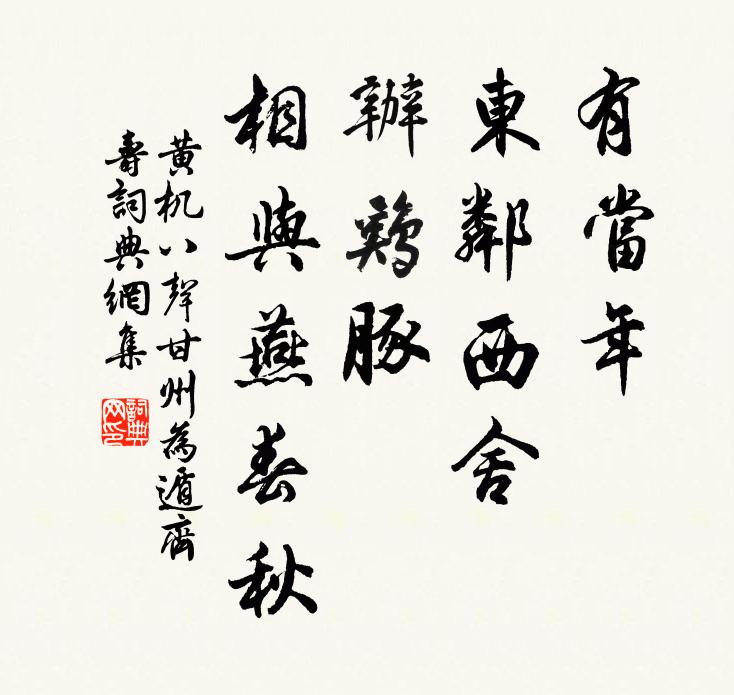 有當年
東鄰西舍
辦鷄豚
相與燕春秋
黃机八聲甘州為遁齋
壽詞典網集
詞典
网印